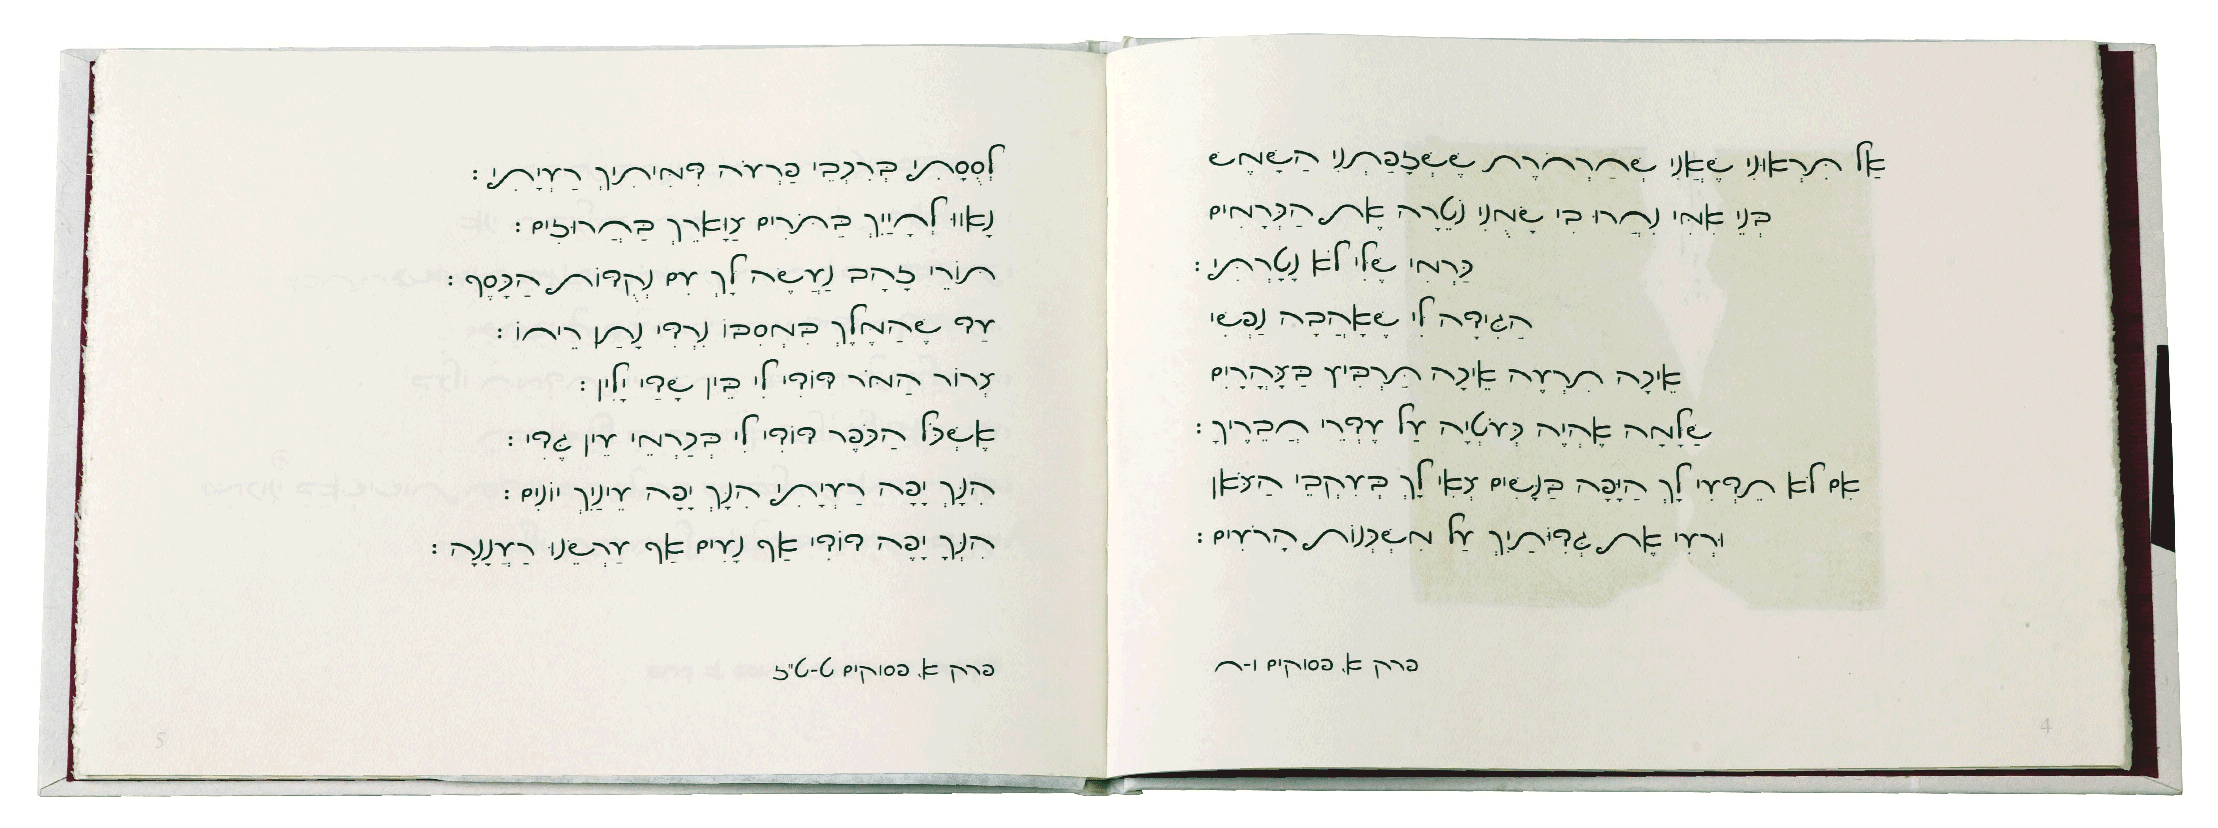 אַל תִּרְאוּנִי שֶׁאֲנִי שְׁחַרְחֹרֶת שֶׁשְּׁזָפַתְנִי הַשָּׁמֶשׁ
בְּנֵי אִמִּי נִחֲרוּ בִי שָׂמֻנִי נֹטֵרָה אֶת הַכְּרָמִים
כַּרְמִי שֶׁלִּי לֹא נָטָרְתִּי :
הַגִּידָה לִּי שֶׁאָהֲבָה נַפְשִׁי
אֵיכָה תִרְעֶה אֵיכָה תַּרְבִּיץ בַּצָּהֳרָיִם
שַׁלָּמָה אֶהְיֶה כְּעֹטְיָה עַל עֶדְרֵי חֲבֵרֶיךָ :
אִם לֹא תֵדְעִי לָךְ הַיָּפָה בַּנָּשִׁים צְאִי לָךְ בְּעִקְבֵי הַצֹּאן
וּרְעִי אֶת גְּדִיֹּתַיִךְ עַל מִשְׁכְּנוֹת הָרֹעִים :
פרק א, פסוקים ו-ח
4
לְסֻסָתִי בְּרִכְבֵי פַרְעֹה דִּמִּיתִיךְ רַעְיָתִי :
נָאווּ לְחָיַיִךְ בַּתֹּרִים צַוָּארֵךְ בַּחֲרוּזִים :
תּוֹרֵי זָהָב נַעֲשֶׂה לָּךְ עִם נְקֻדּוֹת הַכָּסֶף :
עַד שֶׁהַמֶּלֶךְ בִּמְסִבּוֹ נִרְדִּי נָתַן רֵיחוֹ :
צְרוֹר הַמֹּר דּוֹדִי לִי בֵּין שָׁדַי יָלִין :
אֶשְׁכֹּל הַכֹּפֶר דּוֹדִי לִי בְּכַרְמֵי עֵין גֶּדִי :
הִנָּךְ יָפָה רַעְיָתִי הִנָּךְ יָפָה עֵינַיִךְ יוֹנִים :
הִנְּךָ יָפֶה דוֹדִי אַף נָעִים אַף עַרְשֵׂנוּ רַעֲנָנָה :
פרק א, פסוקים ט-ט"ז
5